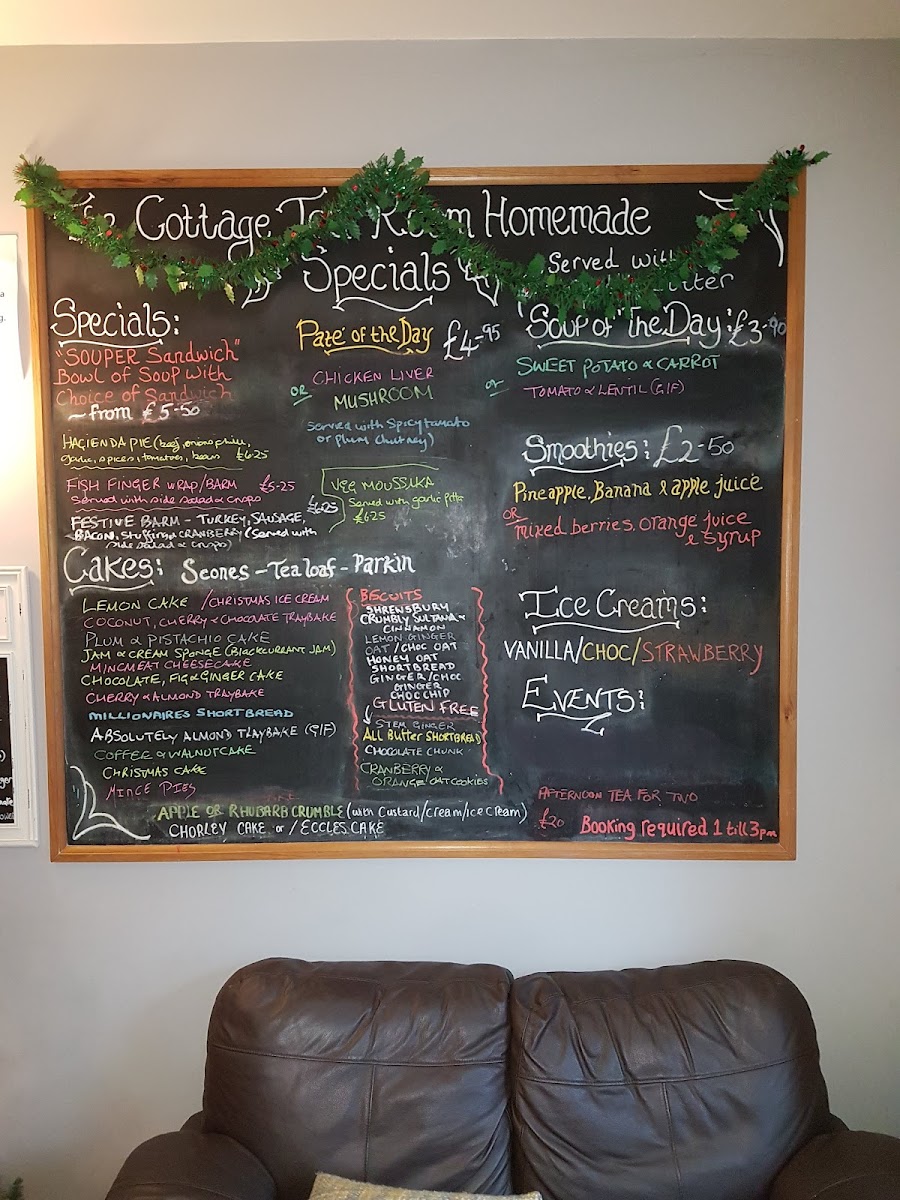 The Cottage Tea Room Homemade
Specials
Served with
Butter
Specials:
"SOUPER Sandwich"
Bowl of Soup with
Choice of Sandwich
~ from £5-50
HACIENDA PIE (beef, onions, chilli,
garlic, spices, tomatoes, beans £6-25
FISH FINGER WRAP/BARM £5-25
Served with side salad & crisps
FESTIVE BARM - TURKEY, SAUSAGE, £6.25
BACON, Stuffing & CRANBERRY (Served with
side salad & crisps)
Pate of the Day £4-95
CHICKEN LIVER
OR
MUSHROOM
Served with Spicy tomato
or Plum Chutney)
VEG MOUSSAKA
Served with garlic pitta
£6.25
Soup of The Day: £3-90
SWEET POTATO & CARROT
or
TOMATO & LENTIL (G/F)
Smoothies: £2-50
Pineapple, Banana & apple juice
OR
mixed berries, orange juice
& syrup
Cakes: Scones - Tea loaf - Parkin
LEMON CAKE /CHRISTMAS ICE CREAM
COCONUT, CHERRY & CHOCOLATE TRAYBAKE
PLUM & PISTACHIO CAKE
JAM & CREAM SPONGE (BLACKCURRANT JAM)
MINCMEAT CHEESECAKE
CHOCOLATE, FIG & GINGER CAKE
CHERRY & ALMOND TRAYBAKE
MILLIONAIRES SHORTBREAD
ABSOLUTELY ALMOND TRAYBAKE (G/F)
COFFEE & WALNUT CAKE
CHRISTMAS CAKE
MINCE PIES
BISCUITS
SHREWSBURY
CRUMBLY SULTANA &
CINNAMON
LEMON GINGER
OAT / CHOC OAT
HONEY OAT
SHORTBREAD
GINGER/CHOC
GINGER
CHOC CHIP
GLUTEN FREE
STEM GINGER
All Butter SHORTBREAD
CHOCOLATE CHUNK
CRANBERRY &
ORANGE OAT COOKIES
APPLE OR RHUBARB CRUMBLE (with Custard/cream/ice cream)
CHORLEY CAKE or / ECCLES CAKE
Ice Creams:
VANILLA/CHOC/STRAWBERRY
EVENTS:
AFTERNOON TEA FOR TWO
£20 Booking required 1 till 3pm